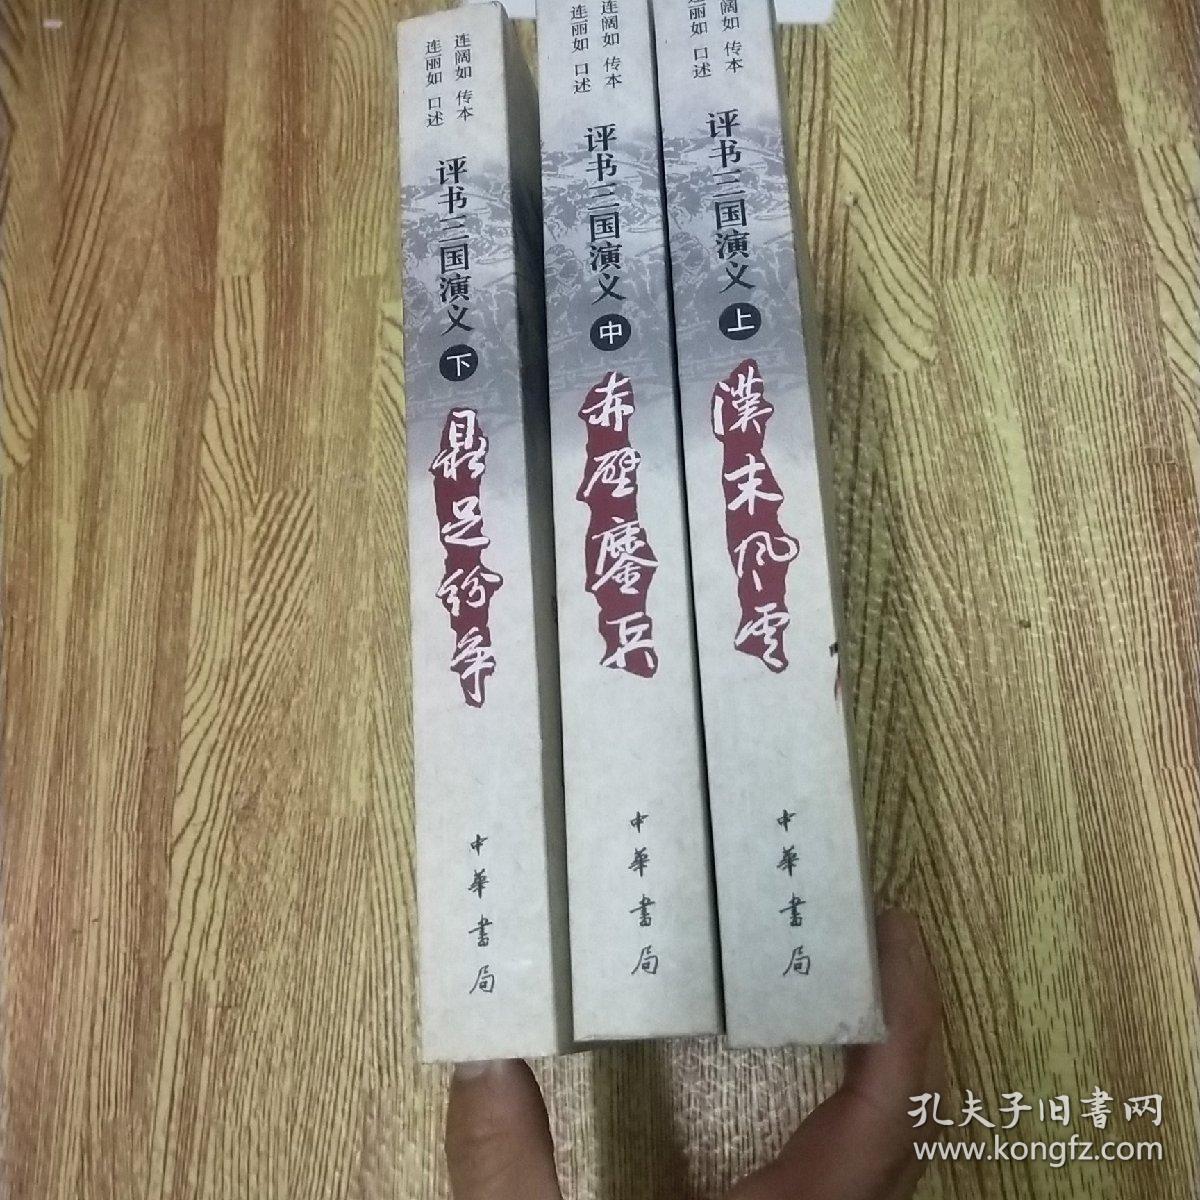 连阔如 传本
连丽如 口述
评书三国演义
下
鼎足纷争
中華書局
连阔如 传本
连丽如 口述
评书三国演义
中
赤壁鏖兵
中華書局
阔如 传本
丽如 口述
评书三国演义
上
漢末风雲
中華書局
孔夫子旧書网
www.kongfz.com